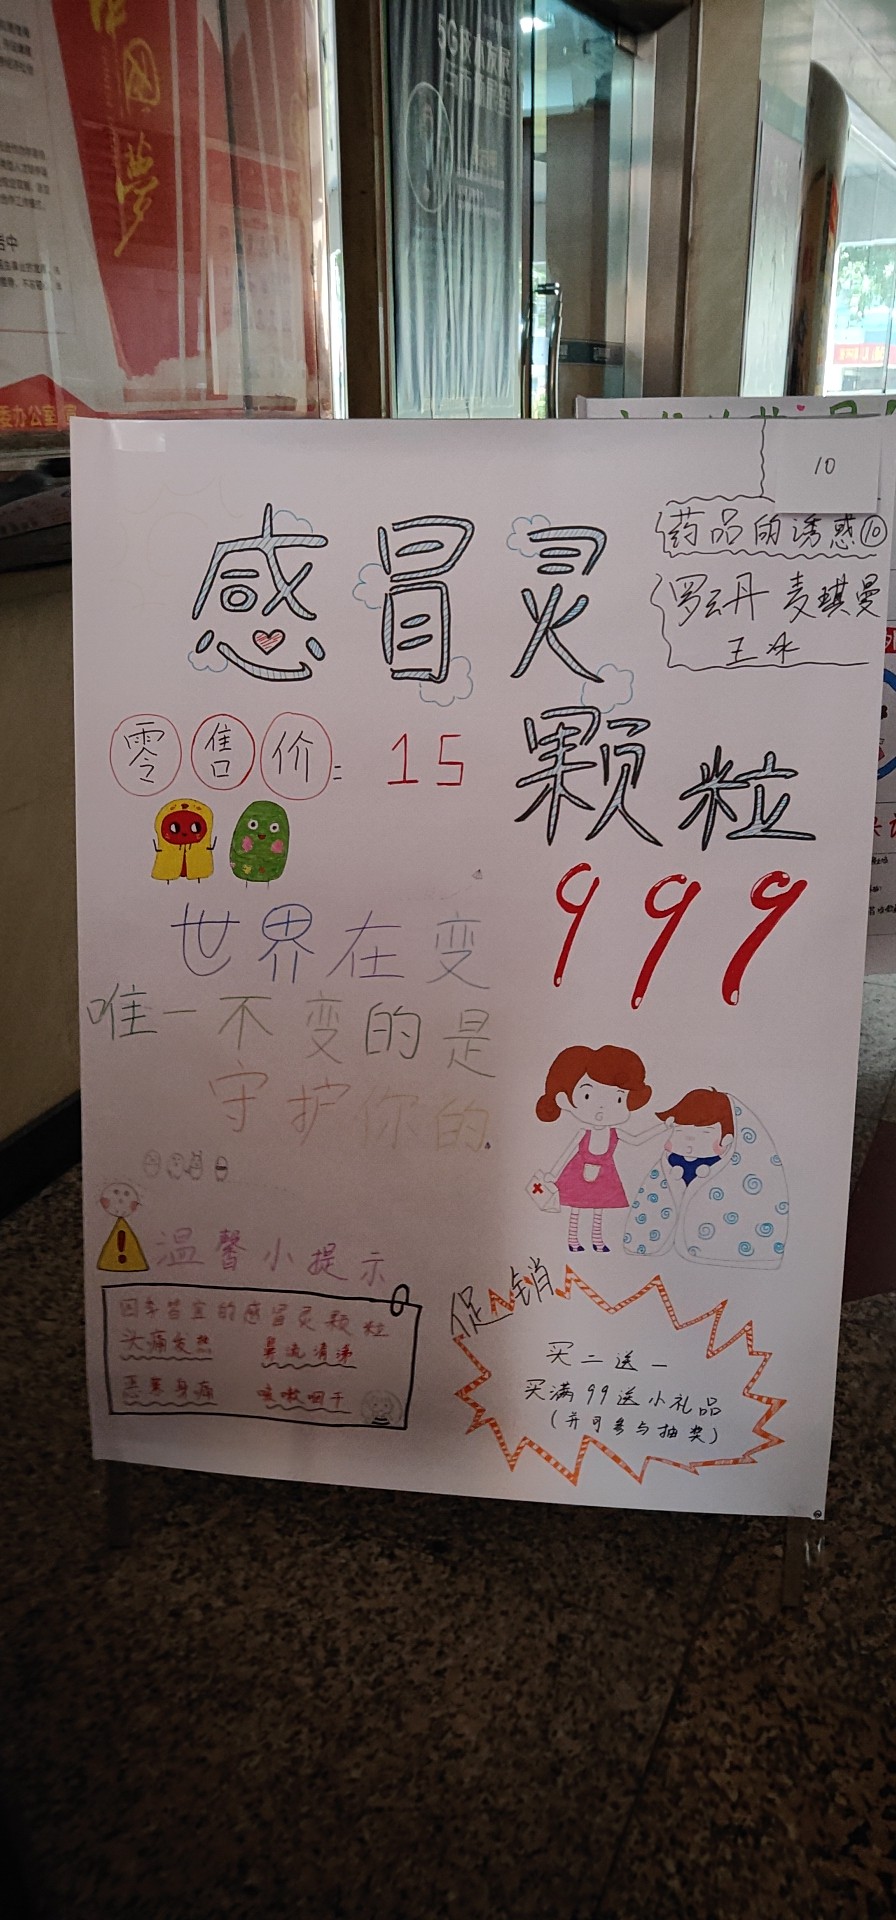 中国梦
委办公室
10
感冒灵
颗粒
999
药品的诱惑⑩
罗云丹 麦琪曼
王冰
零售价: 15
世界在变
唯一不变的是
守护你的。
温馨小提示
四季皆宜的感冒灵颗粒
头痛发热 鼻流清涕
恶寒身痛 咳嗽咽干
促销
买二送一
买满99送小礼品
(并可参与抽奖)